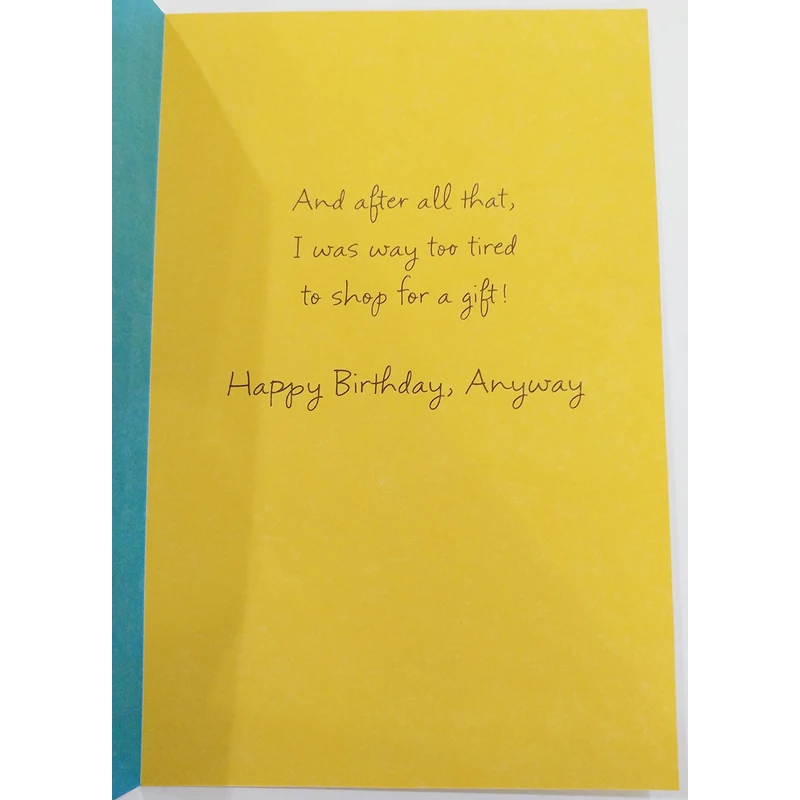 And after all that,
I was way too tired
to shop for a gift!
Happy Birthday, Anyway